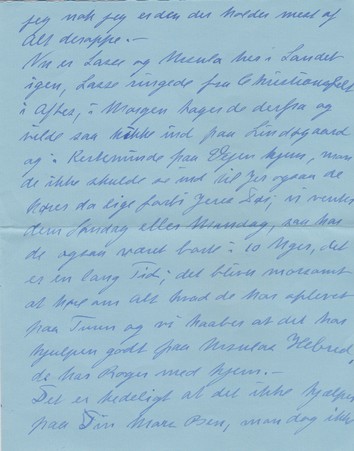 jeg nok jeg er den der holder mest af
alt deroppe.—
Nu er Lasse og Ursula her i Landet
igen, Lasse ringede fra Christiansfeld
i Aftes, i Morgen tager de derfra og
vilde saa kikke ind paa Lindøgaard
og i Kerteminde paa Vejen hjem, men
de ikke skulde se ind til Jer ogsaa de
kører da lige forbi Jeres Dør; vi venter
dem Søndag eller Mandag, saa har
de ogsaa været borte i 10 Uger, det
er en lang Tid; det bliver morsomt
at høre om alt hvad de har oplevet
paa Turen og vi haaber at det har
hjulpen godt paa Ursulas Helbred,
de har Roger med hjem.—
Det er kedeligt at det ikke hjælper
paa Din Mave Sen, man dog ikke